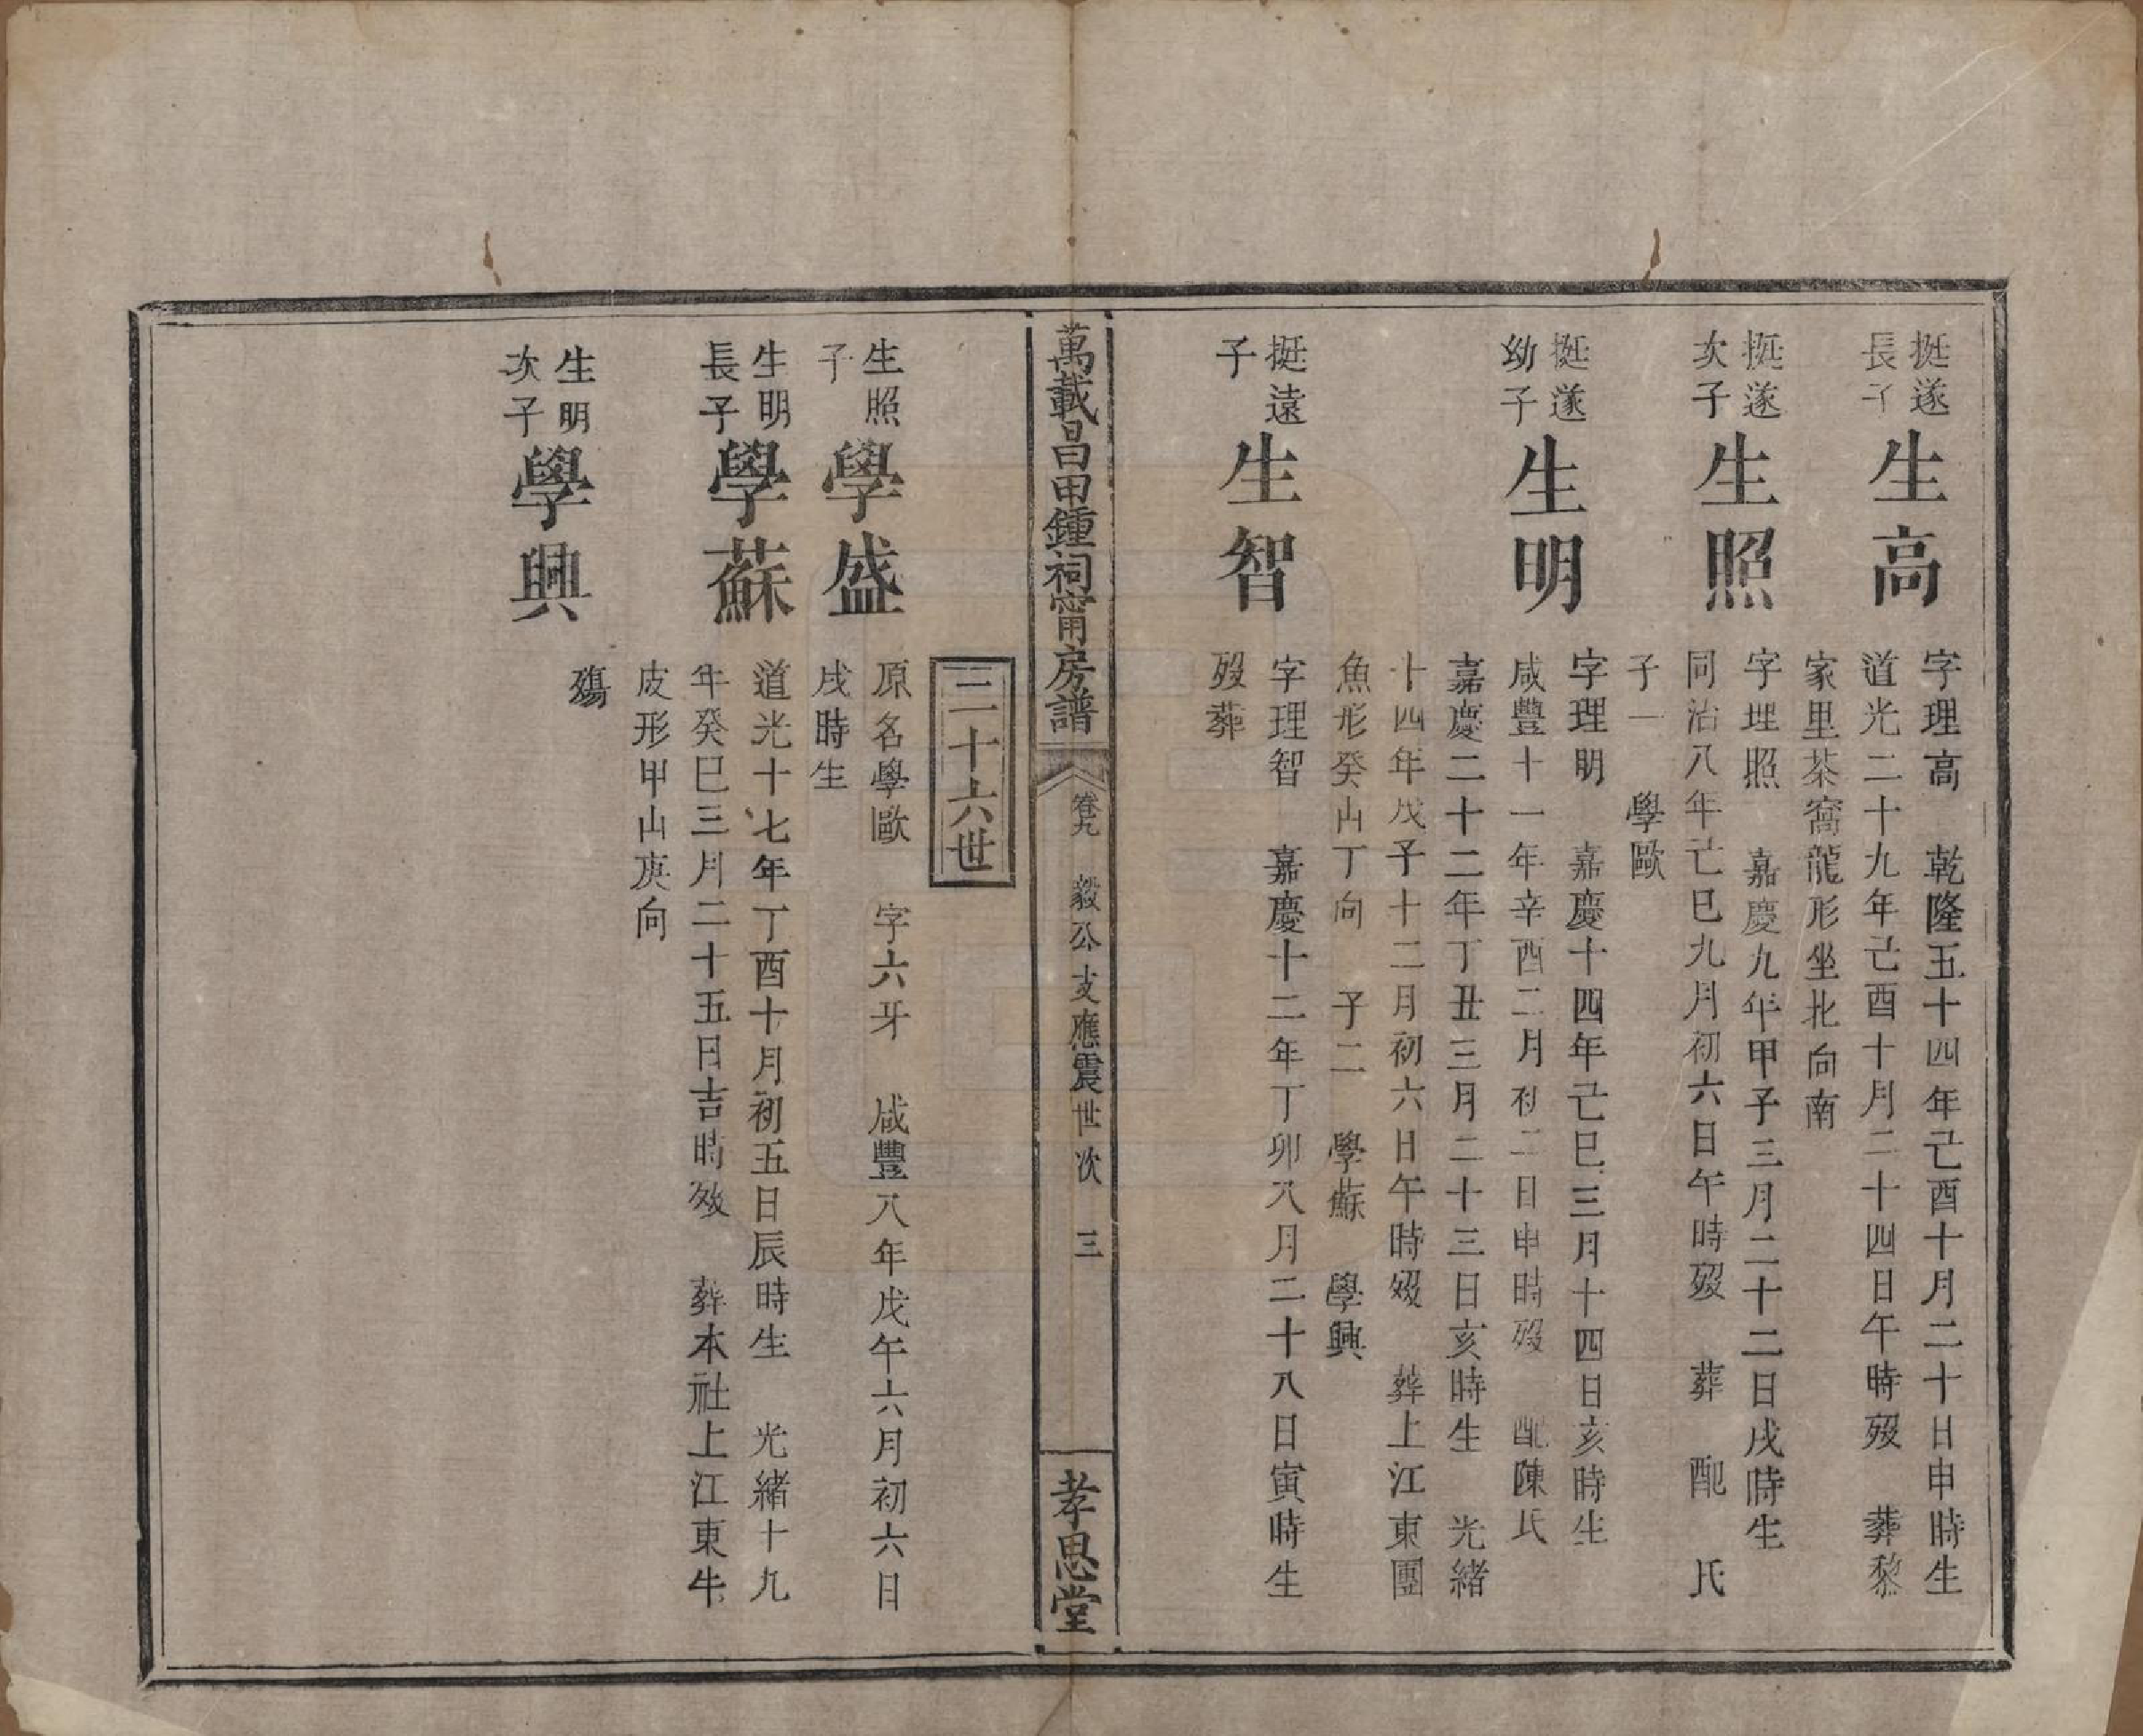 挺遂
長子
生高
字理高　乾隆五十四年己酉十月二十日申時生
道光二十九年己酉十月二十四日午時歿　葬黎
家里茶窩龍形坐北向南
挺遂
次子
生照
字理照　嘉慶九年甲子三月二十二日戌時生
同治八年己巳九月初六日午時歿　葬　配　氏
子一　學歐
挺遂
幼子
生明
字理明　嘉慶十四年己巳三月十四日亥時生
咸豐十一年辛酉二月初二日申時歿　配陳氏
嘉慶二十二年丁丑三月二十三日亥時生　光緒
十四年戊子十二月初六日午時歿　葬上江東團
魚形癸山丁向　子二　學蘇　學興
挺遠
子
生智
字理智　嘉慶十二年丁卯八月二十八日寅時生
歿葬
萬載昌田鍾祠甯房譜
卷九　毅公支應震世次　三
孝思堂
二十六世
生照
子
學盛
原名學歐　字六牙　咸豐八年戊午六月初六日
戌時生
生明
長子
學蘇
道光十七年丁酉十月初五日辰時生　光緒十九
年癸巳三月二十五日吉時歿　葬本社上江東牛
皮形甲山庚向
生明
次子
學興
殤